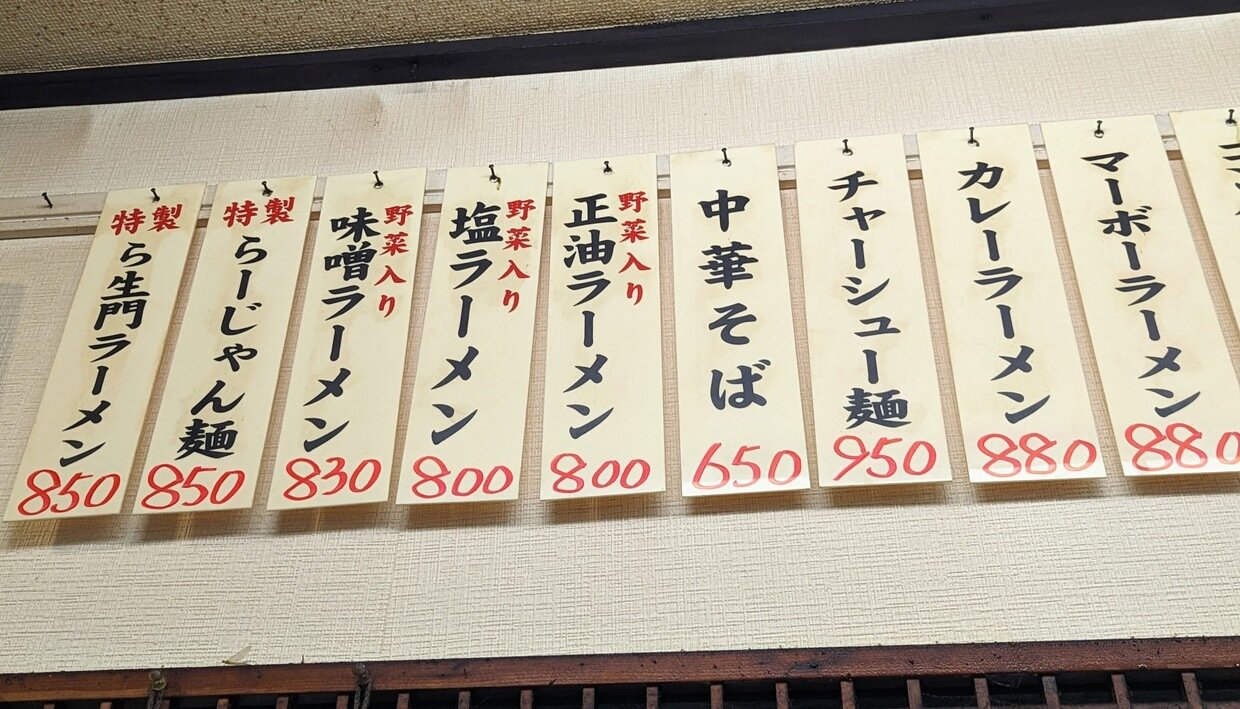 特製
ら生門ラーメン
850
特製
らーじゃん麺
850
野菜入り
味噌ラーメン
830
野菜入り
塩ラーメン
800
野菜入り
正油ラーメン
800
中華そば
650
チャーシュー麺
950
カレーラーメン
880
マーボーラーメン
880